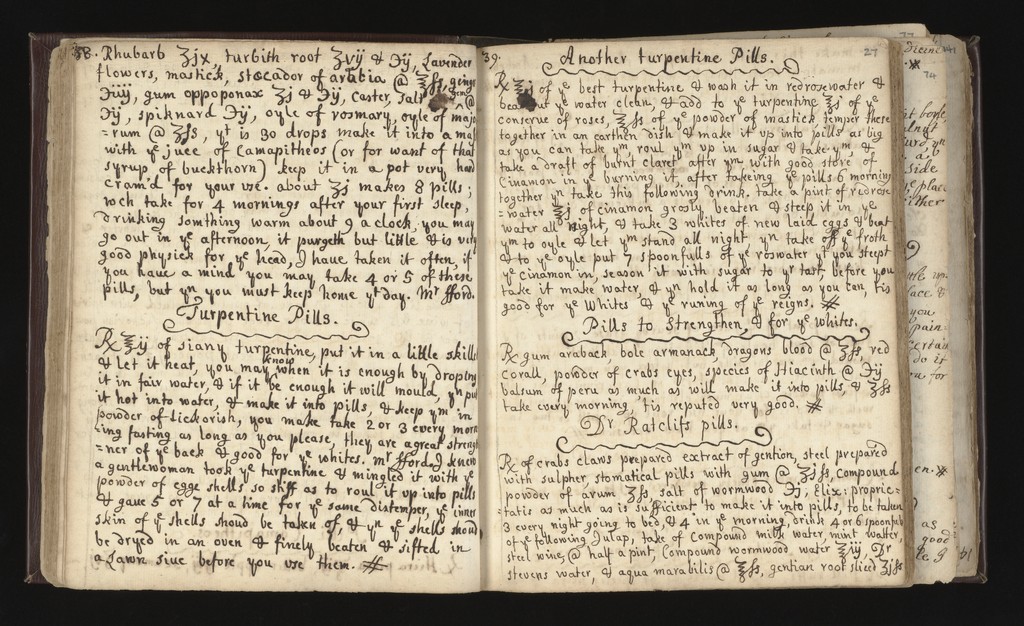 38. Rhubarb ʒjx, turbith root ʒvij & ℈ij, Lavender
flowers, mastick, stœcador of arabia @ ʒſs, ginger
℈iiij, gum oppoponax ʒj & ℈ij, Caster, Salt gem @
℈ij, spiknard ℈ij, oyle of rosmary, oyle of majo
=rum @ ʒſs, yt is 30 drops make it into a mass
with ye juce of Camapitheos (or for want of that
syrup of buckthorn) keep it in a pot very hard
cram'd for your use. about ʒj makes 8 pills;
wch take for 4 mornings after your first sleep,
drinking somthing warm about 9 a clock, you may
go out in ye afternoon, it purgeth but little & is very
good physick for ye head, I have taken it often, if
you have a mind you may take 4 or 5 of these
pills, but yn you must keep home yt day. Mr fford.
Turpentine Pills.
℞ ℥ij of siany turpentine, put it in a little skillet
& let it heat, you may know when it is enough by droping
it in fair water, & if it be enough it will mould, yn put
it hot into water, & make it into pills, & keep ym in
powder of lickorish, you make take 2 or 3 every morn
=ing fasting as long as you please, they are a great strengt
=ner of ye back & good for ye whites. mr fford. J knew
a gentlewoman took ye turpentine & mingled it with ye
powder of egge shells so stiff as to roul it up into pills
& gave 5 or 7 at a time for ye same distemper, ye inner
skin of ye shells shoud be taken of, & yn ye shells shoud
be dryed in an oven & finely beaten & sifted in
a Lawn siue before you use them.
39. Another turpentine Pills. 27
℞ ℥j of ye best turpentine & wash it in redrosewater &
beat out ye water clean, & add to ye turpentine ℥j of ye
conserve of roses, ℥ſs of ye powder of mastick temper there
together in an earthen dish & make it up into pills as big
as you can take ym, roul ym up in sugar & take ym, &
take a draft of burnt claret after ym with good store of
Cinamon in ye burning it, after takeing ye pills 6 mornings
together yn take this following drink. take a pint of redrose
=water ℥j of cinamon grosly beaten & steep it in ye
water all night, & take 3 whites of new laid eggs & beat
ym to oyle & let ym stand all night, yn take off ye froth
& to ye oyle put 7 spoonfulls of ye roswater yt you steept
ye Cinamon in, season it with sugar to yr tast, before you
take it make water, & yn hold it as long as you can, tis
good for ye Whites & ye runing of ye reigns.
Pills to Strengthen, & for ye whites.
℞ gum araback, bole armanack, dragons blood @ ʒſs, red
Corall, powder of crabs eyes, species of Hiacinth @ ℈ij
balsum of peru as much as will make it into pills, & ʒſs
take every morning, 'tis reputed very good.
Dr Ratclifs pills.
℞ of crabs claws prepared extract of gention, steel prepared
with sulpher, stomatical pills with gum @ ʒjſs, Compound
powder of arum ʒſs, salt of wormwood ℈j; Elix: proprie=
=tatis as much as is sufficient to make it into pills, to be taken
3 every night going to bed, & 4 in ye morning, drink 4 or 6 spoonfuls
of ye following Julap, take of Compound milk water, mint watter,
steel wine @ half a pint, Compound wormwood water ℥iij, Dr
stevens water, & aqua marabilis @ ℥ſs, gentian root sliced ʒjſs